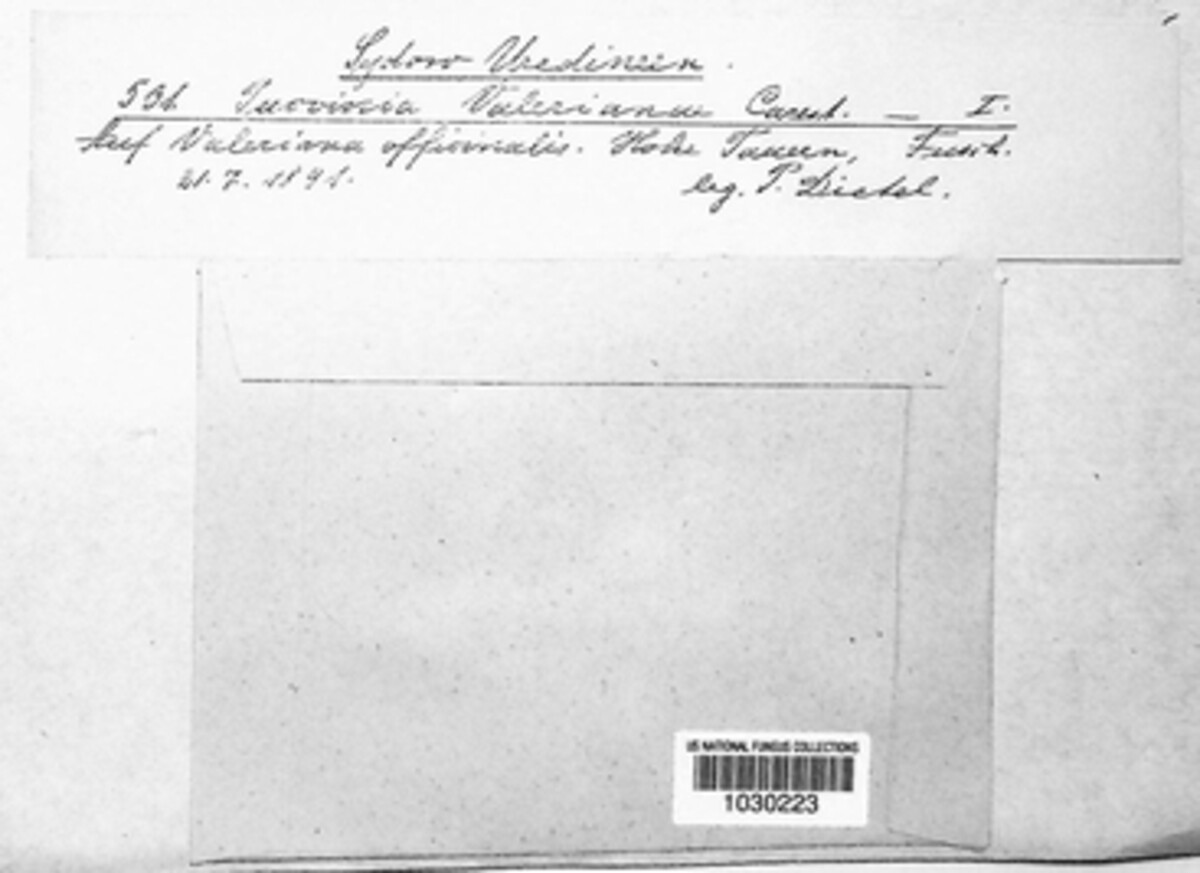 Sydow Uredineen.
531 Puccinia Valerianae Carest. — I.
Auf Valeriana officinalis. Hohe Tauern, Fusch.
21. 7. 1891. leg. P. Dietel.
US NATIONAL FUNGUS COLLECTIONS
1030223